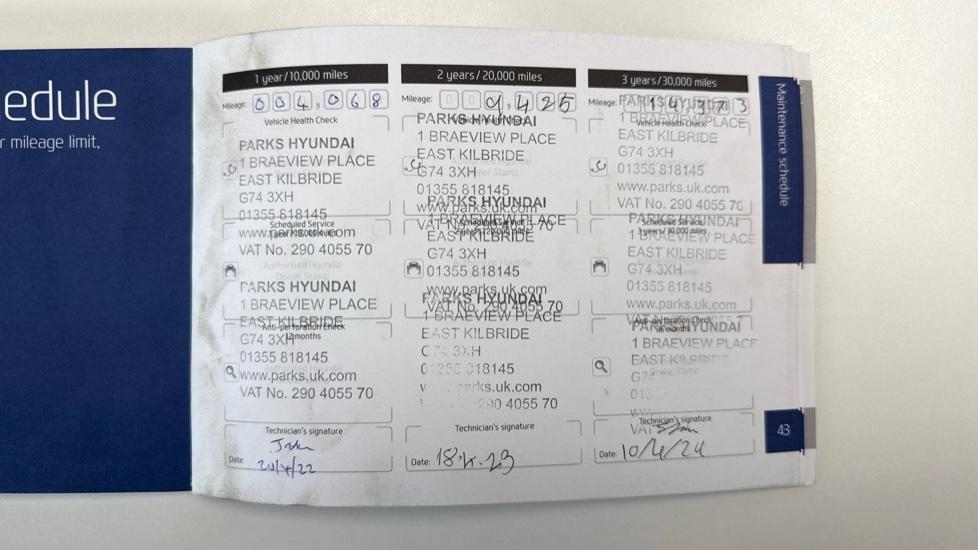 edule
r mileage limit,
1 year/10,000 miles
Mileage: 004,068
Vehicle Health Check
PARKS HYUNDAI
1 BRAEVIEW PLACE
EAST KILBRIDE
G74 3XH
01355 818145
Scheduled Service
www.parks.uk.com
VAT No. 290 4055 70
Authorised Hyundai
Dealer Stamp
PARKS HYUNDAI
1 BRAEVIEW PLACE
EAST KILBRIDE
Anti-perforation Check
G74 3XH
12 months
01355 818145
www.parks.uk.com
VAT No. 290 4055 70
Technician's signature
Date:
2 years/20,000 miles
Mileage: 009,425
Vehicle Health Check
PARKS HYUNDAI
1 BRAEVIEW PLACE
EAST KILBRIDE
G74 3XH
Dealer Stamp
01355 818145
www.parks.uk.com
PARKS HYUNDAI
VAT No. 290 4055 70
1 BRAEVIEW PLACE
Scheduled Service
EAST KILBRIDE
G74 3XH
01355 818145
www.parks.uk.com
VAT No. 290 4055 70
PARKS HYUNDAI
1 BRAEVIEW PLACE
EAST KILBRIDE
3XH
818145
rks.uk.com
290 4055 70
Technician's signature
Date:
3 years/30,000 miles
Mileage: 14,373
PARKS HYUNDAI
1 BRAEVIEW PLACE
Vehicle Health Check
EAST KILBRIDE
G74 3XH
01355 818145
www.parks.uk.com
VAT No. 290 4055 70
PARKS HYUNDAI
Scheduled Service
3 years/30,000 miles
1 BRAEVIEW PLACE
EAST KILBRIDE
G74 3XH
01355 818145
www.parks.uk.com
Anti-perforation Check
PARKS HYUNDAI
36 months
1 BRAEVIEW PLACE
EAST KILBRIDE
G74
Technician's signature
VAT
Date: 10/4/24
Maintenance schedule
43